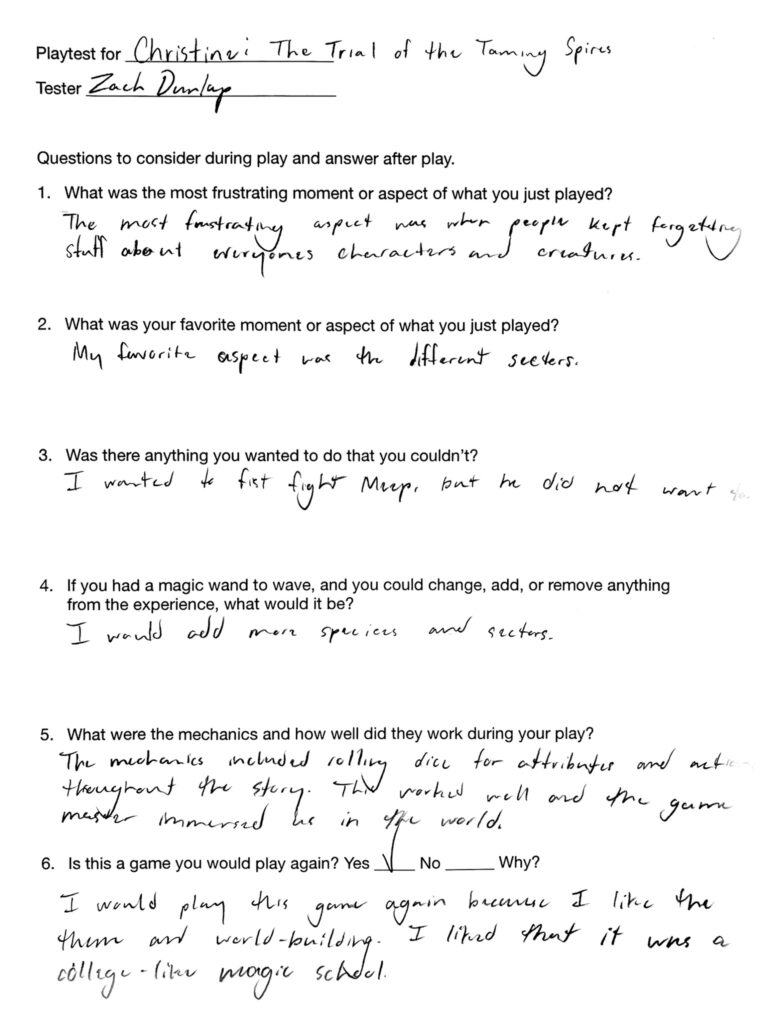 Playtest for Christine: The Trial of the Taming Spires
Tester Zach Dunlap
Questions to consider during play and answer after play.
1. What was the most frustrating moment or aspect of what you just played?
The most frustrating aspect was when people kept forgetting
stuff about everyones characters and creatures.
2. What was your favorite moment or aspect of what you just played?
My favorite aspect was the different secters.
3. Was there anything you wanted to do that you couldn't?
I wanted to fist fight Meep, but he did not want to.
4. If you had a magic wand to wave, and you could change, add, or remove anything
from the experience, what would it be?
I would add more speciecs and sectors.
5. What were the mechanics and how well did they work during your play?
The mechanics included rolling dice for attributes and
throughout the story. This worked well and the game
master immersed us in the world.
6. Is this a game you would play again? Yes ✓ No ______ Why?
I would play this game again because I like the
them and world-building. I liked that it was a
college-like magic school.